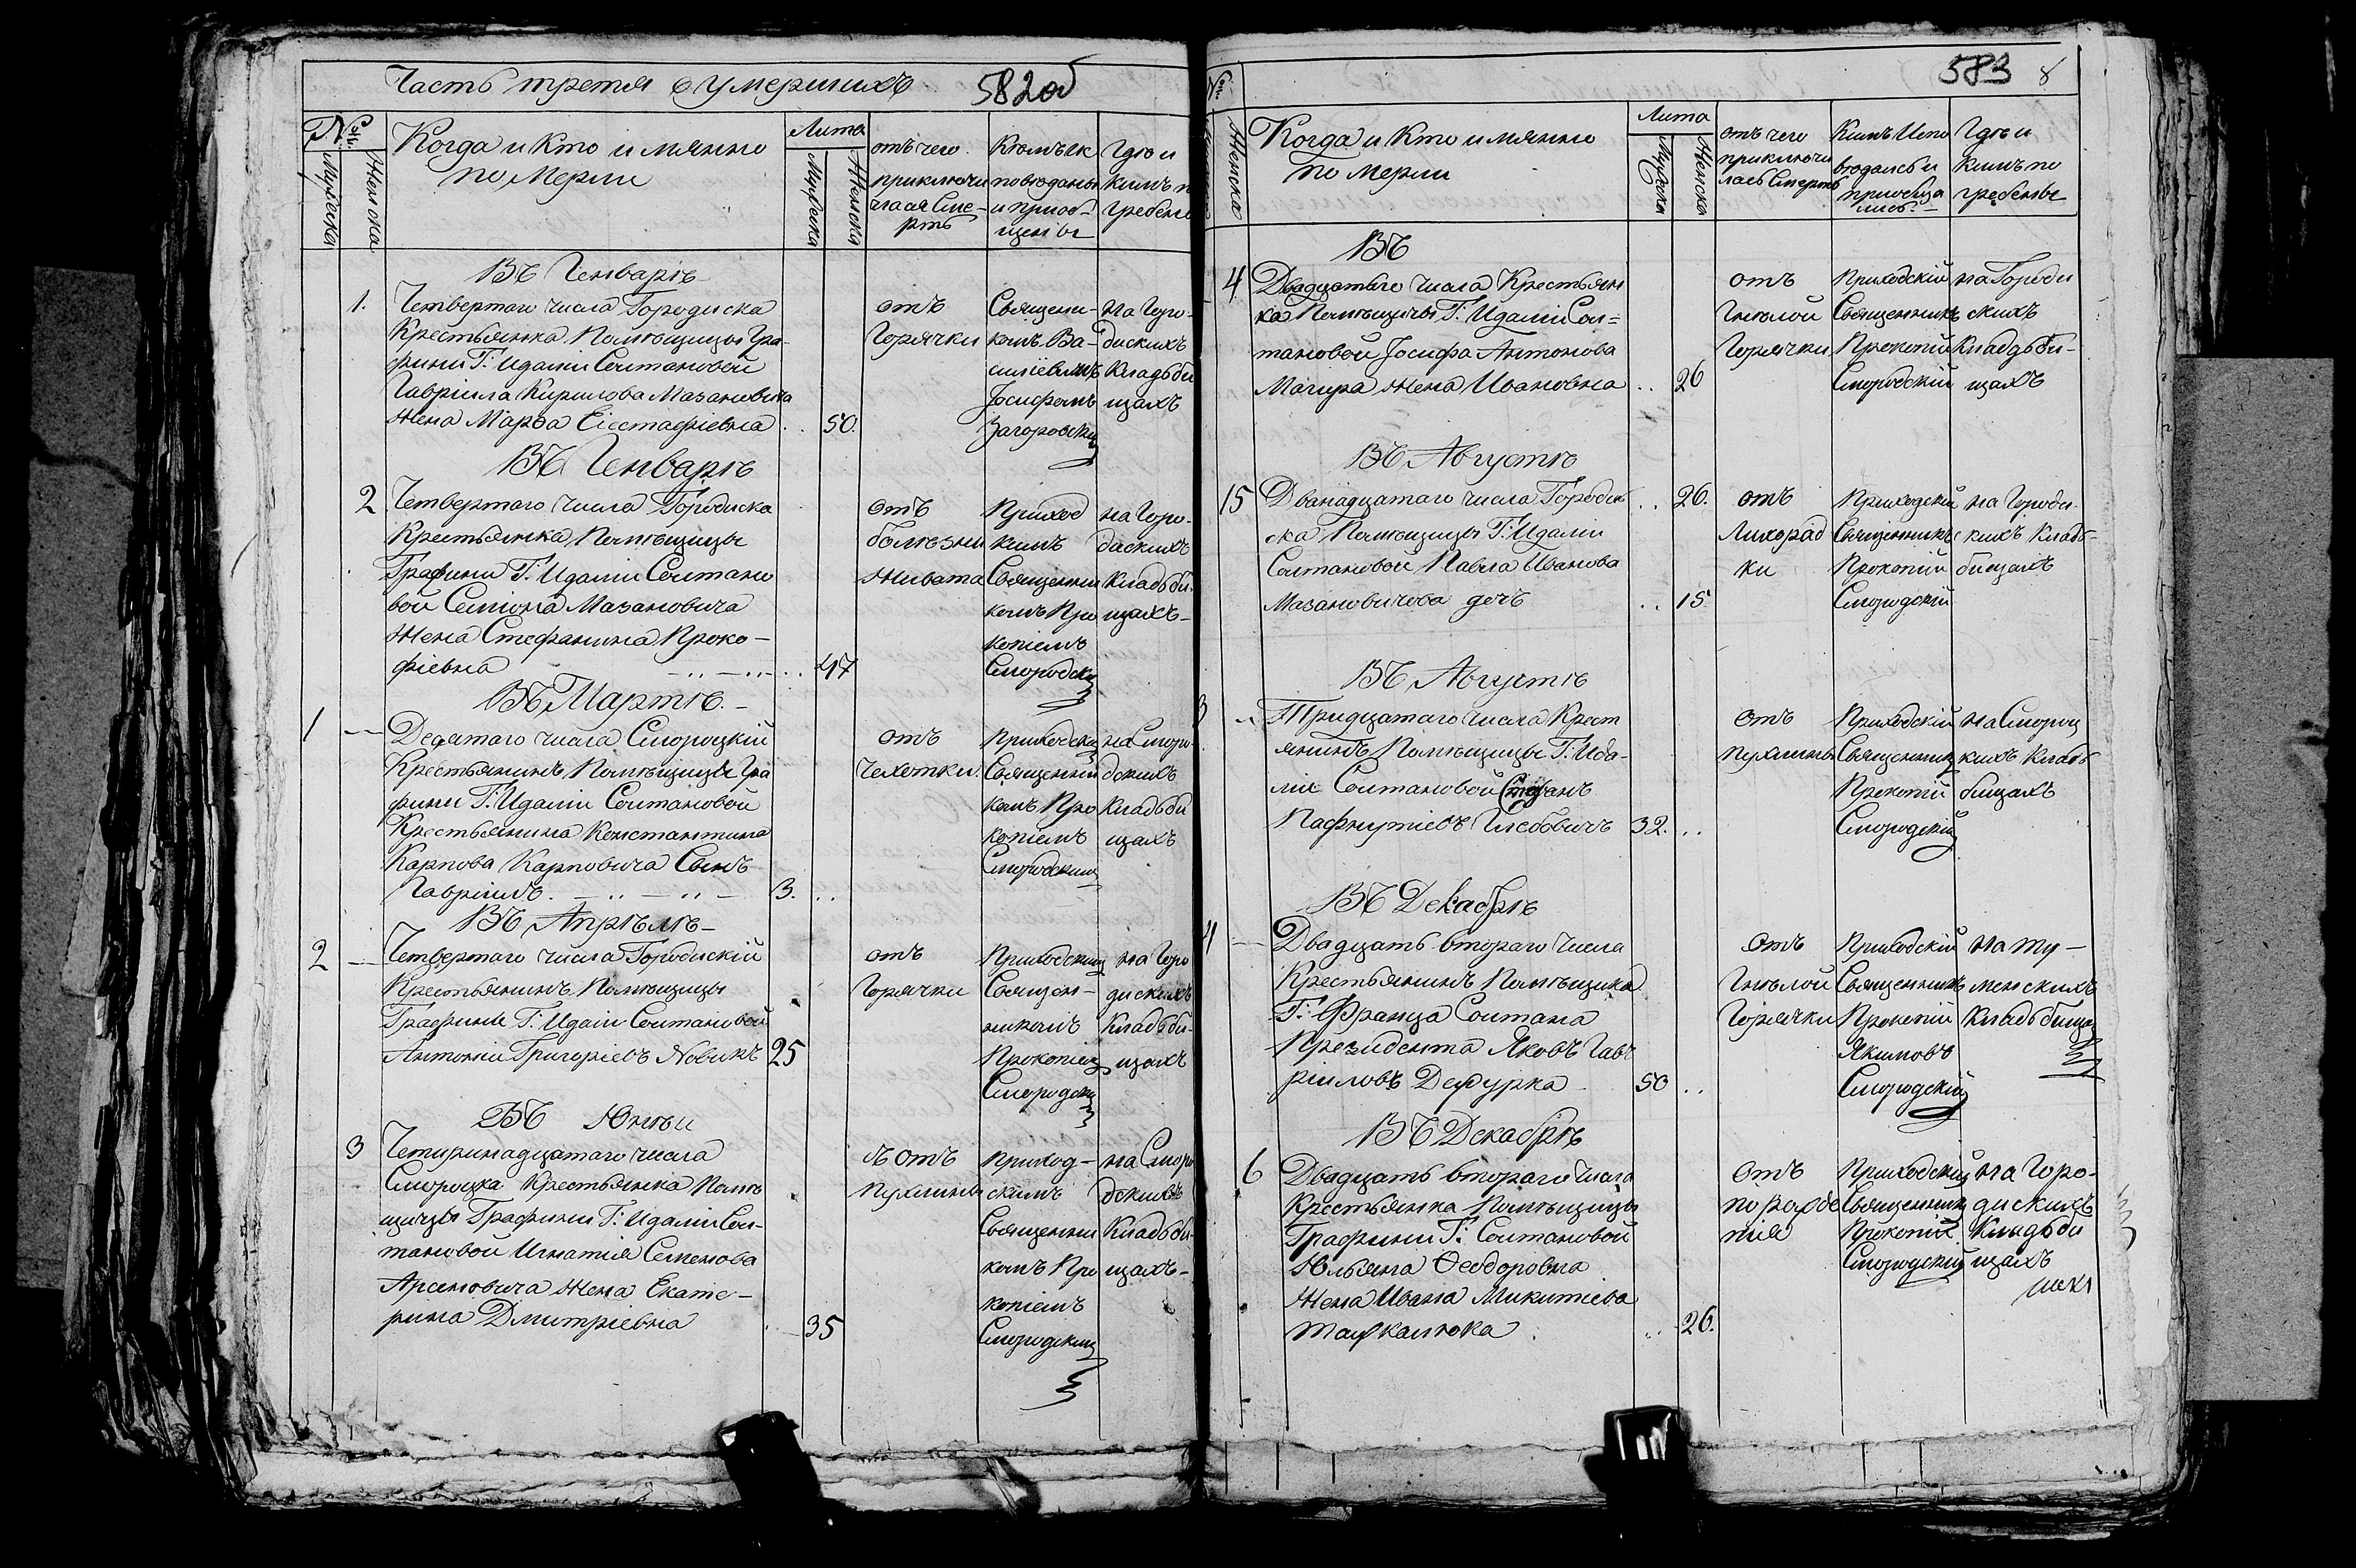 Часть третя о умершихъ 582об
№
Мужеска
Женска
Когда и Кто имянно
по мерли
Лита
Мужеска
Женска
отъ чего
приключи
лася Сме-
рть
Кѣмъ Ис
поведаны
и приоб-
щены
Где и
кимъ по
гребены
Въ Генварѣ
1. Четвертаго числа Городиска
Крестьянка Помѣщицы Гра-
фини Г: Идалiи Солтановой
Гаврiила Кирилова Мазановича
Жена Марθа Евстафiевна .. 50.
отъ
Горячки
Священи-
комъ Ва-
силiевичъ
Iосифомъ
Загоровски
на Горо-
дискихъ
Кладъби
щахъ
Въ Генварѣ
2 Четвертаго числа Городиска
Крестьянка Помѣщицы
Графини Г: Идалiи Солтано
вой Семiона Мазановича
Жена Стефанина Проко-
фiевна .. 47
отъ
болѣзни
Живата
Приход
кимъ
Священни
комъ Про
копiемъ
Смородски
на Горо-
дискихъ
Кладъби-
щахъ-
Въ Мартѣ.-
1 Десятаго числа Смороцкiй
Крестьянинъ Помѣщицы Гра
фини Г: Идалiи Солтановой
Крестьянина Константина
Карпова Карповича Сынъ
Гаврiилъ. 3. ..
отъ
Чехотки.
Приходски
Священни
комъ Про
копiемъ
Смородским
на Сморо-
дскихъ
Кладъби
щахъ
Въ Апрѣлѣ-
2 Четвертаго числа Городискiй
Крестьянинъ Помѣщицы
Графины Г: Идалiи Солтановой
Антонiи Григорiевъ Новикъ 25
отъ
Горячки
Приходским
Священ-
никомъ
Прокопiем
Смородски
на Горо
дискихъ
Кладъби-
щахъ
Въ Юнѣи
3 Четиринадцатаго числа
Смороцка Крестьянка Помѣ
щицы Графини Г: Идалiи Сол-
тановой Игнатiя Семенова
Арсеновича Жена Екате-
рина Дмитрiевна 35
ъ отъ
пухлины
приход-
скимъ
Священни
комъ Про
копiемъ
Смородским
на Сморо
дскихъ
Кладъби-
щахъ-
583 8
№
Женска
Когда и Кто имянно
по мерли
Лита
Мужеска
Женска
отъ чего
приключи
лась Смерть
Кимъ Испо
ведались и
приобща
лись.
Где и
кимъ по
гребены
Въ
4 Двадцатаго числа Крестьян
ка Помѣщицы Г: Идалiи Сол=
тановой Iосифа Антонова
Магира жена Ивановна .. 26
отъ
Гнилой
Горячки
Приходскiй
Священникъ
Прокопiй
Смородскiй
на Городи
скихъ
Кладъби-
щахъ
Въ Августѣ
15 Дванадцатаго числа Городис .. 26.
ска Помѣщицы Г: Идалiи
Солтановой Павла Иванова
Мазановичова дочь .. 15
отъ
Лихорад
ки
Приходскiй
Священникъ
Прокопiй
Смородскiй
на Городи-
скихъ Кладъ-
бищахъ
Въ Августѣ
3 Тридцатаго числа Крест
янинъ Помѣщицы Г: Ида-
лiи Солтановой Стефанъ
Пафнутiевъ Глебовичъ 32. ..
отъ
пухлины
Приходскiй
Священник
Прокопiй
Смородскiй
на Смороц
кихъ Кладъ
бищахъ
Въ Декабрѣ
4 Двадцать втораго числа
Крестьянинъ Помѣщика
Г: Франца Солтана
Президента Яковъ Гав-
рiиловъ Дефурка 50 ..
отъ
Гнилой
Горячки
Приходскiй
Священникъ
Прокопiй
Якимовъ
Смородскiй
на ту-
менскихъ
Кладъбищах
Въ Декабрѣ
6 Двадцать втораго числа
Крестьянка Помѣщицы
Графини Г: Солтановой
Юльяна Θеодоровна
Жена Ивана Микитiева
.. 26.
отъ
Приходскiй
Священник
Прокопiй
Смородскiй
на Горо-
дискихъ
Кладъби
щахъ